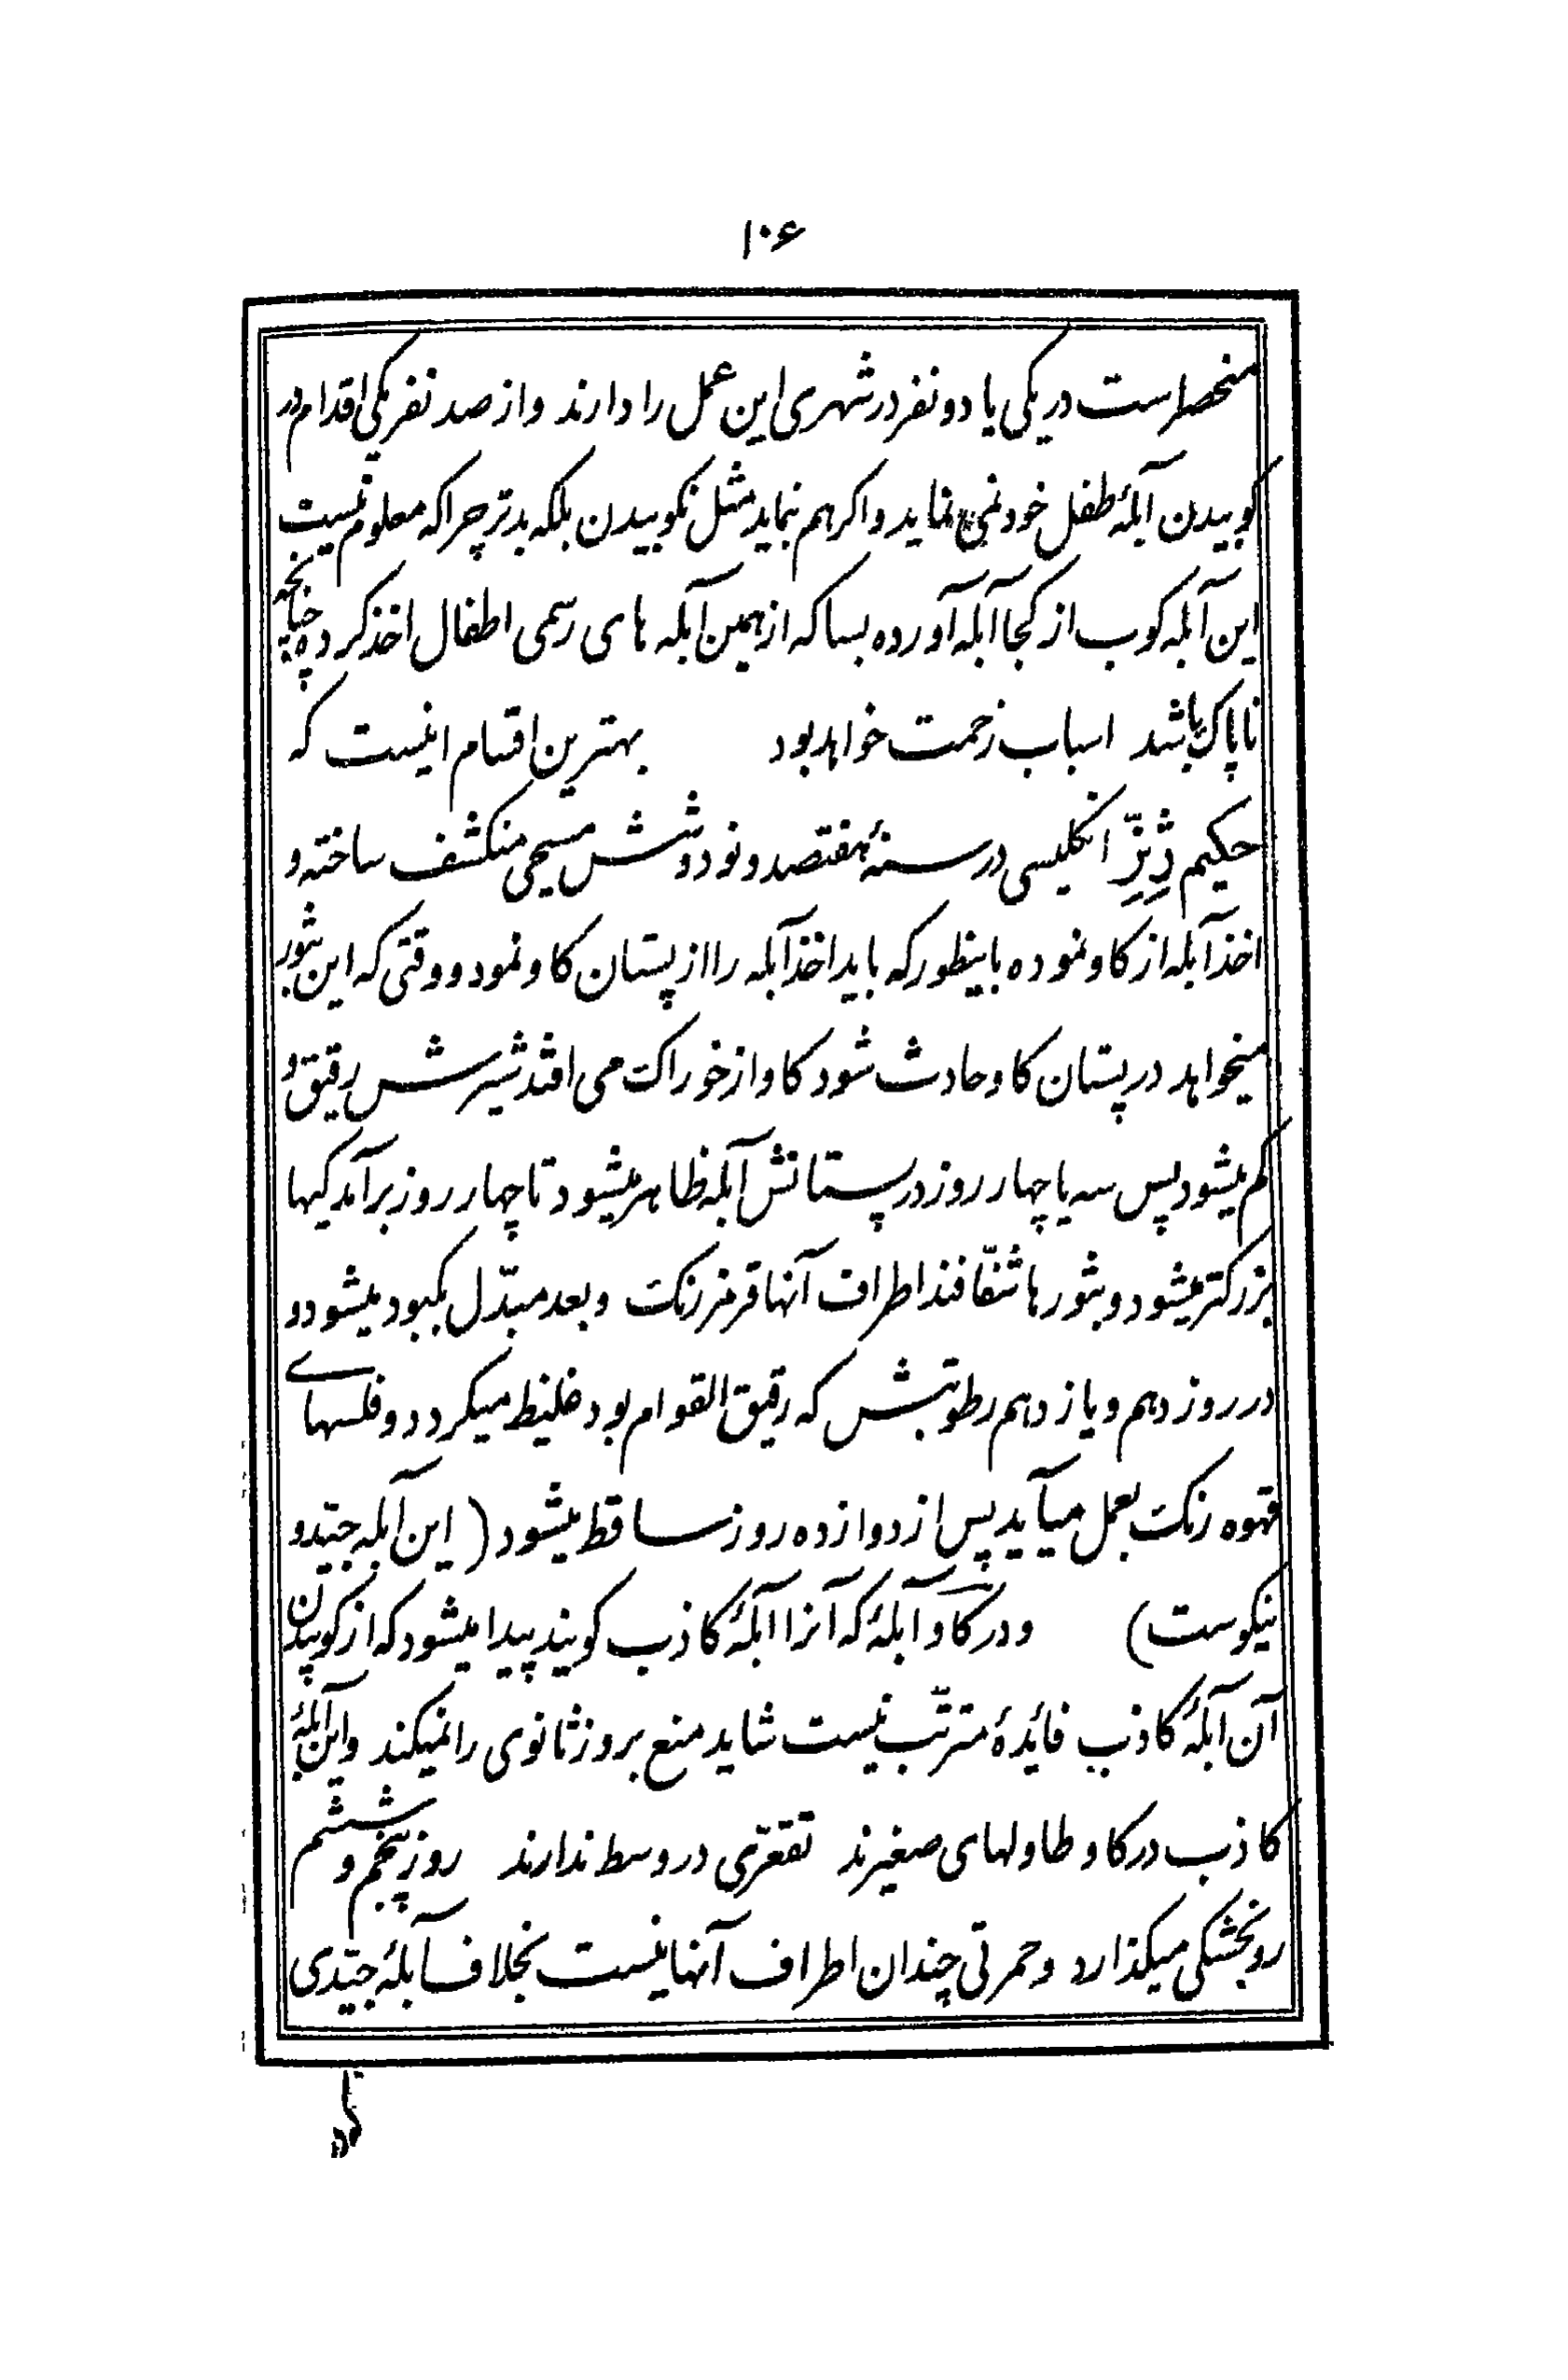 ۱۰۶
منحصراست در یکی یا دو نفر در شهری این عمل را دارند و از صد نفر یکی اقدام در
کوبیدن آبلهٔ طفل خود نمی نماید و اکر هم بنماید مثل نکوبیدن بلکه بدتر چرا که معلوم نیست
این آبله کوب از کجا آبله آورده بسا که از همین آبله های رسمی اطفال اخذ کرده چنانچه
ناپاک باشد اسباب زحمت خواهد بود بهترین اقسام اینست که
حکیم انکلیسی در سنهٔ هفتصد و نود و شش مسیحی منکشف ساخته و
اخذ آبله از کاو نموده باینطور که باید اخذ آبله را از پستان کاو نمود و وقتی که این بثور
میخواهد در پستان کاو حادث شود کاو از خوراک می افتد شیرش رقیق و
کم میشود پس سه یا چهار روز در پستانش آبله ظاهر میشود تا چهار روز برآمدکیها
بزرکتر میشود و بثورها شفّافند اطراف آنها قرمز رنک و بعد مبدّل بکبود میشود و
در روز دهم و یازدهم رطوبتش که رقیق القوام بود غلیظ میکردد و فلسهای
قهوه رنک بعمل میآید پس از دوازده روز ساقط میشود (این آبله جیّد و
نیکوست) و در کاو آبلهٔ که آنرا آبلهٔ کاذب کویند پیدا میشود که از کوبیدن
آن آبلهٔ کاذب فائدهٔ مترتّب نیست شاید منع بروز ثانوی را نمیکند و این آبلهٔ
کاذب در کاو طاولهای صغیرند تقعّری در وسط ندارند روز پنجم و ششم
رو بخشکی میکذارد و حمرتی چندان اطراف آنها نیست بخلاف آبلهٔ جیّدی